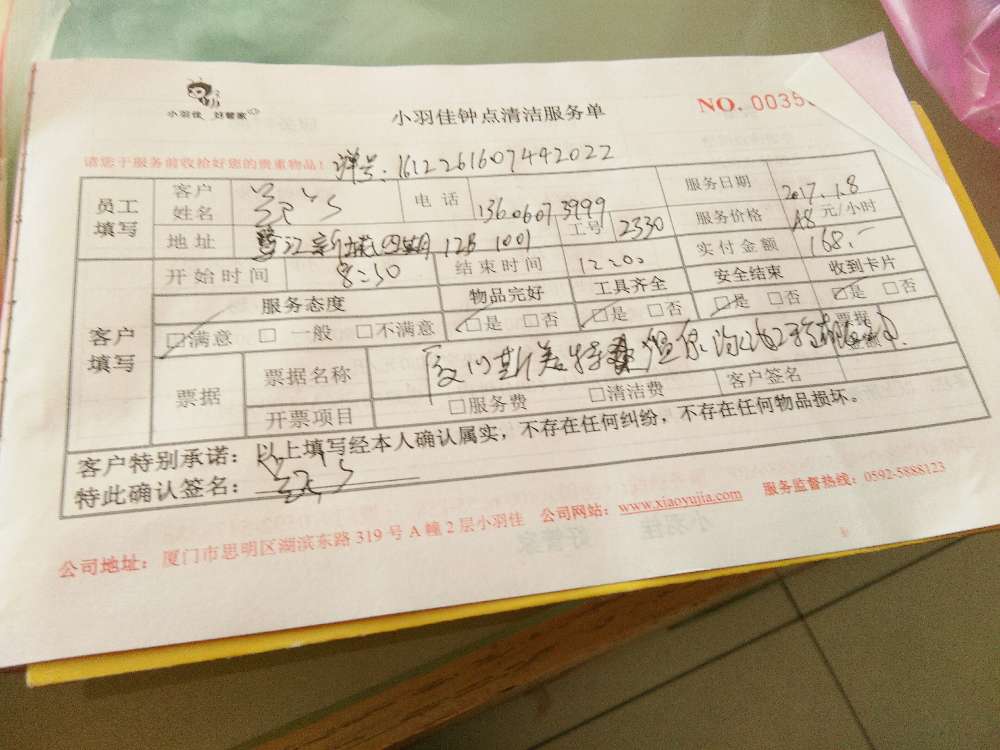 小羽佳 好管家
小羽佳钟点清洁服务单
NO. 0035
请您于服务前收拾好您的贵重物品！ 单号：1612261607442022
员工填写 客户姓名 电话 13606073999 服务日期 2017.1.8
地址 新城四期 12B 1001 工号 2330 服务价格 48 元/小时
实付金额 168.-
客户填写 开始时间 8:30 结束时间 12:00
服务态度 物品完好 工具齐全 安全结束 收到卡片
□满意 □ 一般 □不满意 □是 □否 □是 □否 □是 □否 □是 □否
票据 票据名称 厦门斯若特 有限公司 票据
开票项目 □服务费 □清洁费 客户签名
客户特别承诺：以上填写经本人确认属实，不存在任何纠纷，不存在任何物品损坏。
特此确认签名：
公司地址：厦门市思明区湖滨东路 319 号 A 幢 2 层小羽佳 公司网站：www.xiaoyujia.com 服务监督热线：0592-5888123